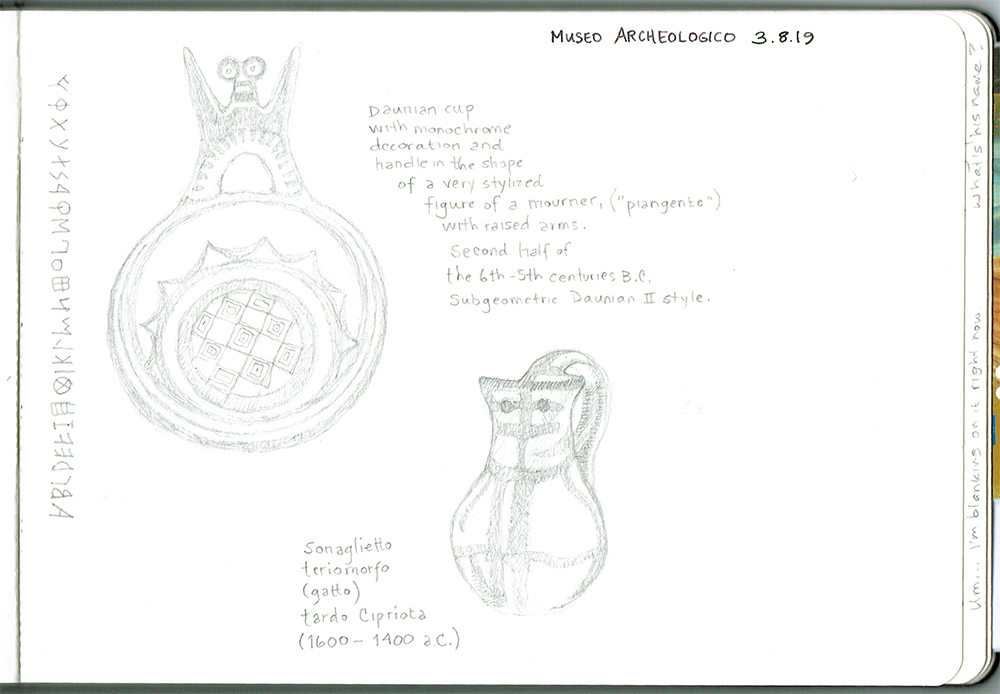 MUSEO ARCHEOLOGICO 3.8.19
Daunian cup
with monochrome
decoration and
handle in the shape
of a very stylized
figure of a mourner, ("piangente")
with raised arms.
Second half of
the 6th-5th centuries B.C.
Subgeometric Daunian II style.
Sonaglietto
teriomorfo
(gatto)
tardo Cipriota
(1600 - 1400 a.C.)
Um... I'm blanking on it right now
what's his name?